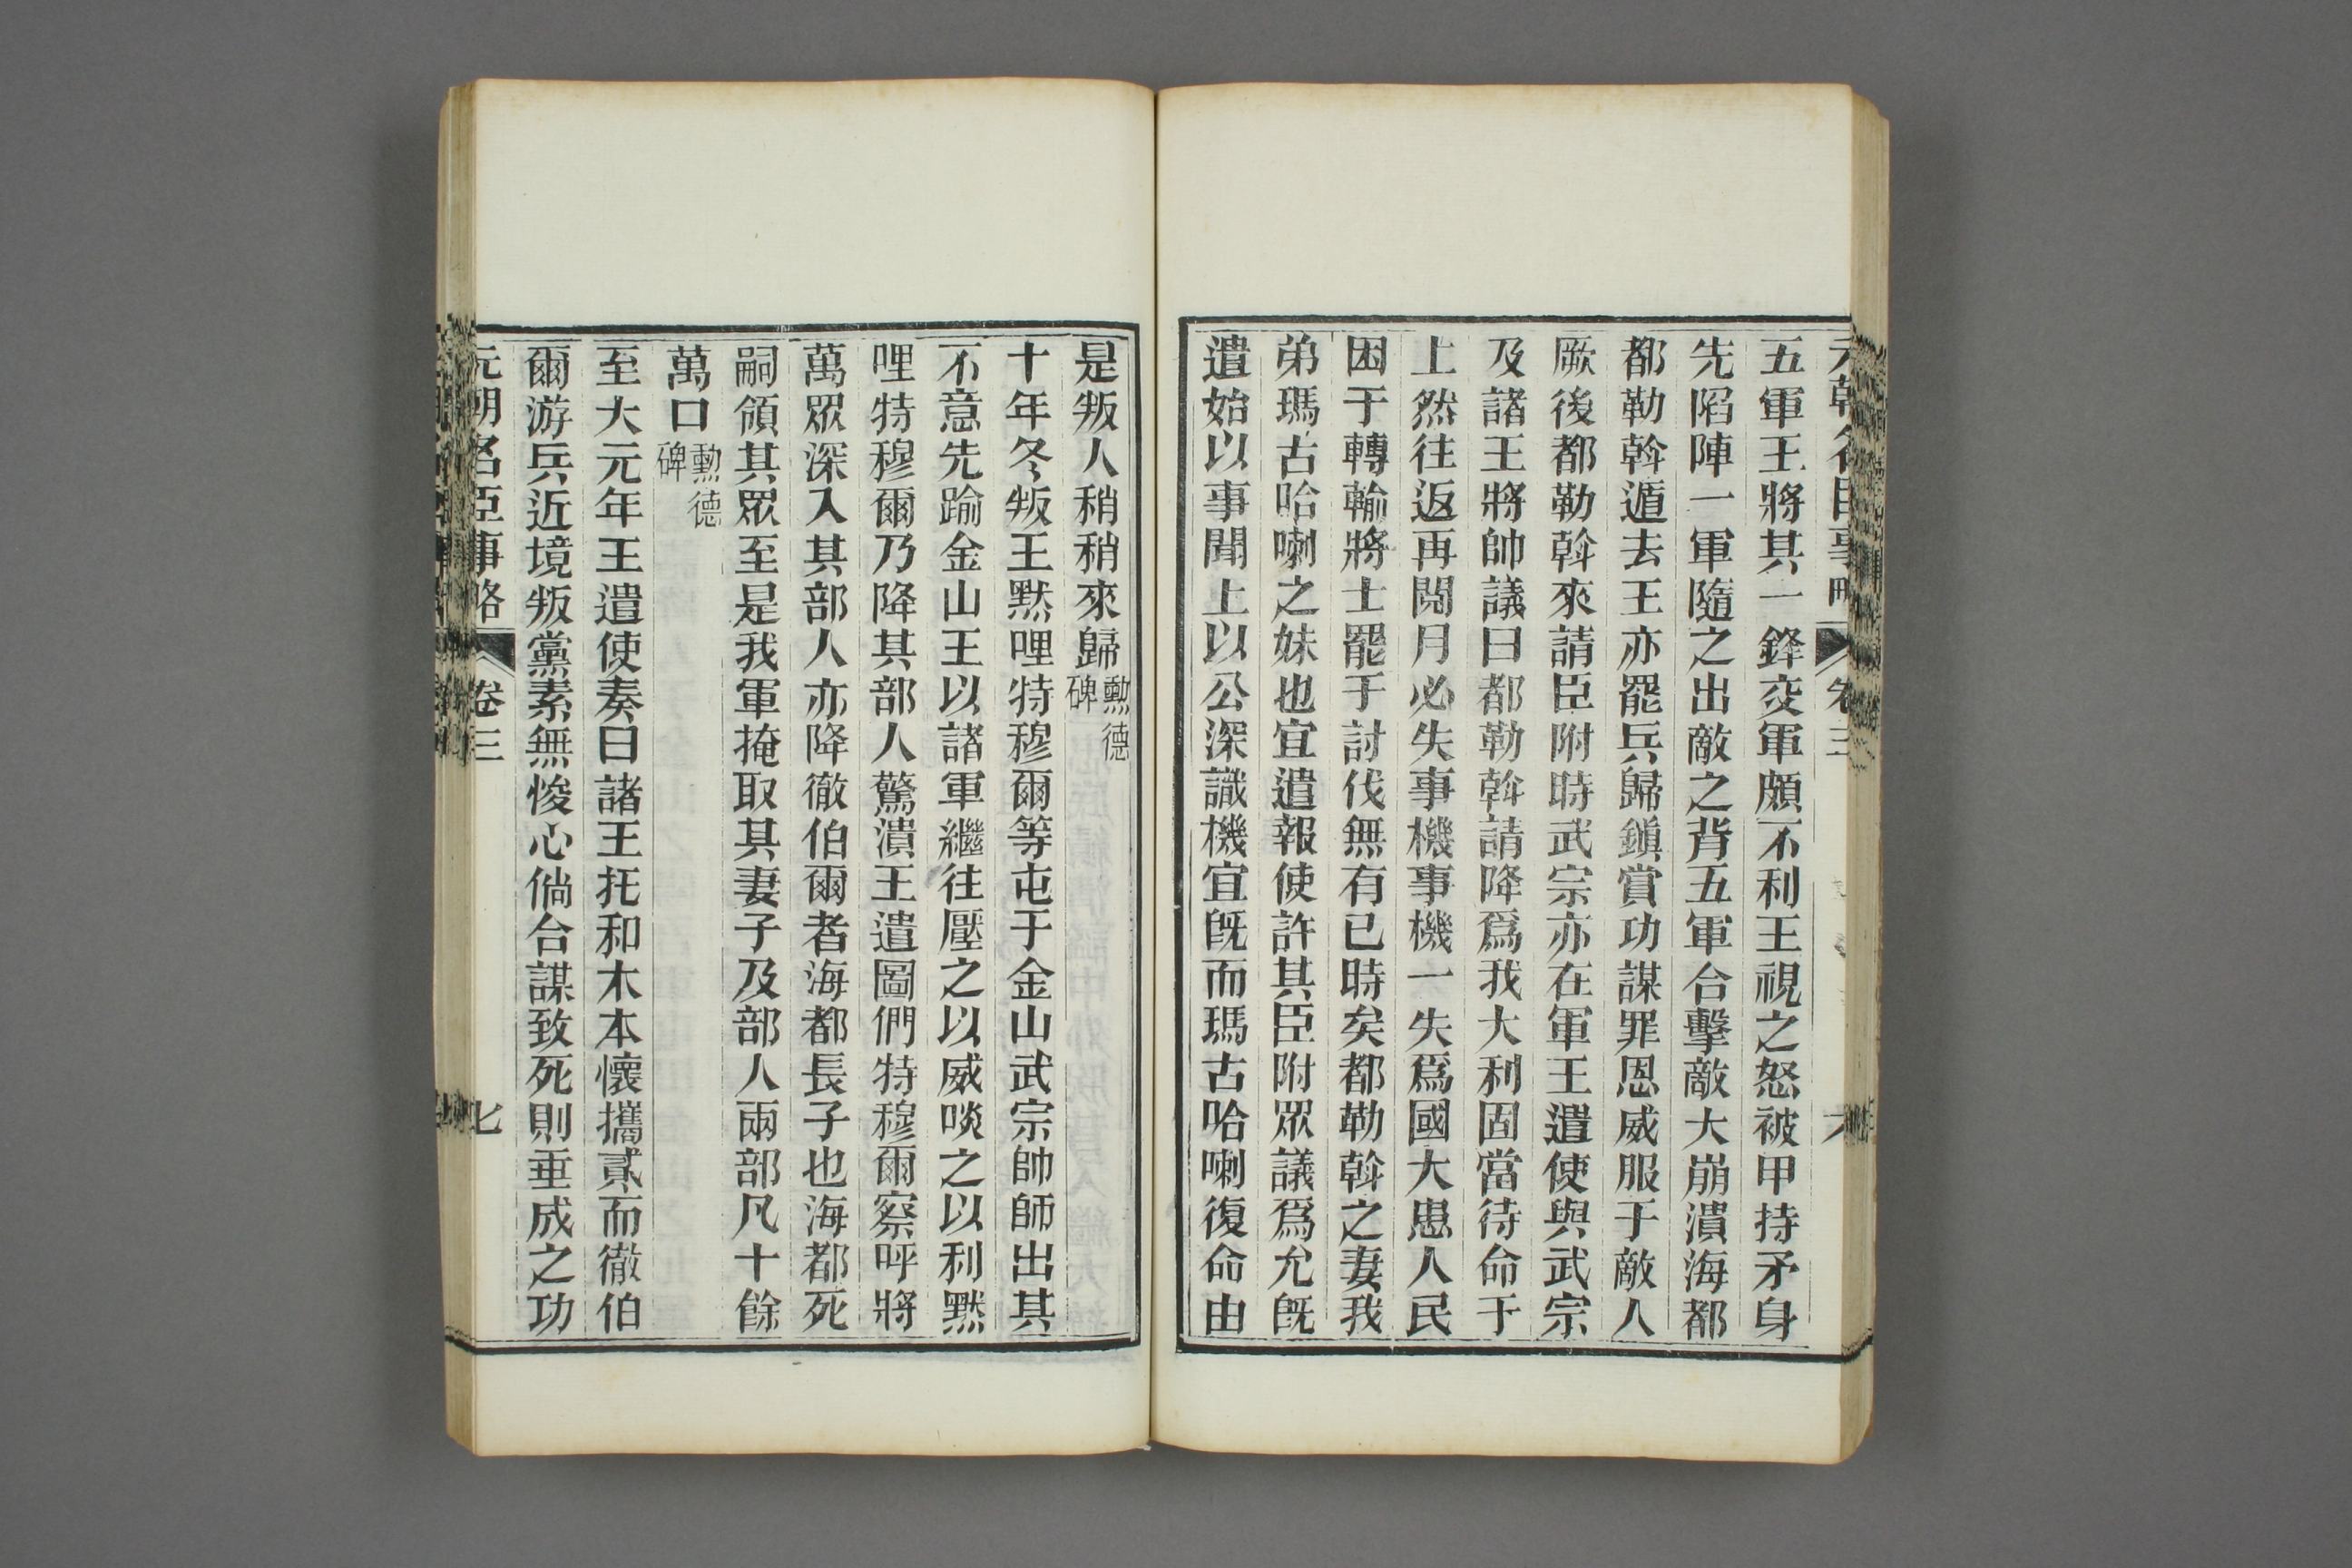 元朝名臣事略 卷三 六
五軍王將其一鋒交軍頗不利王視之怒被甲持矛身
先陷陣一軍隨之出敵之背五軍合擊敵大崩潰海都
都勒斡遁去王亦罷兵歸鎮賞功謀罪恩威服于敵人
厥後都勒斡來請臣附時武宗亦在軍王遣使與武宗
及諸王將帥議曰都勒斡請降爲我大利固當待命于
上然往返再閱月必失事機事機一失爲國大患人民
困于轉輸將士罷于討伐無有已時矣都勒斡之妻我
弟瑪古哈喇之妹也宜遣報使許其臣附眾議爲允旣
遣始以事聞上以公深識機宜旣而瑪古哈喇復命由
是叛人稍稍來歸勳德碑
十年冬叛王黙哩特穆爾等屯于金山武宗帥師出其
不意先踰金山王以諸軍繼往壓之以威啖之以利黙
哩特穆爾乃降其部人驚潰王遣圖們特穆爾察呼將
萬眾深入其部人亦降徹伯爾者海都長子也海都死
嗣領其眾至是我軍掩取其妻子及部人兩部凡十餘
萬口勳德碑
至大元年王遣使奏曰諸王托和木本懷攜貳而徹伯
爾游兵近境叛黨素無悛心倘合謀致死則垂成之功
元朝名臣事略 卷三 七